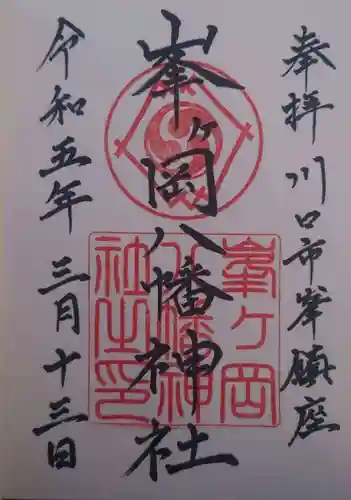 奉拝 川口市峯鎮座
峯ヶ岡八幡神社
峯ヶ岡
八幡神
社之印
令和五年 三月十三日